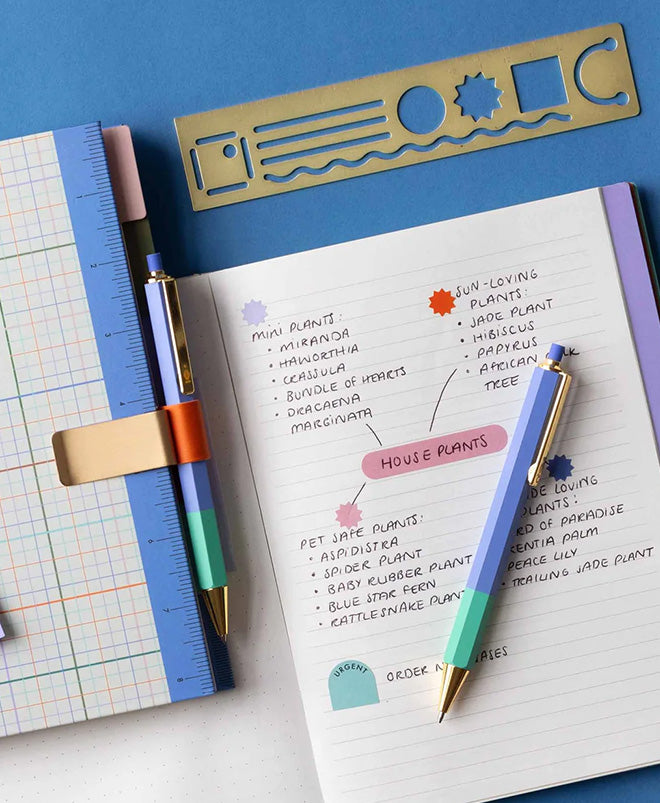 MINI PLANTS:
• MIRANDA
• HAWORTHIA
• CRASSULA
• BUNDLE OF HEARTS
• DRACAENA
MARGINATA
SUN-LOVING
PLANTS:
• JADE PLANT
• HIBISCUS
• PAPYRUS
• AFRICAN
TREE
HOUSE PLANTS
PET SAFE PLANTS:
• ASPIDISTRA
• SPIDER PLANT
• BABY RUBBER PLANT
• BLUE STAR FERN
• RATTLESNAKE PLANT
LOVING
PLANTS:
OF PARADISE
PALM
PEACE LILY
• TRAILING JADE PLANT
URGENT
ORDER
1
2
3
4
6
7
8